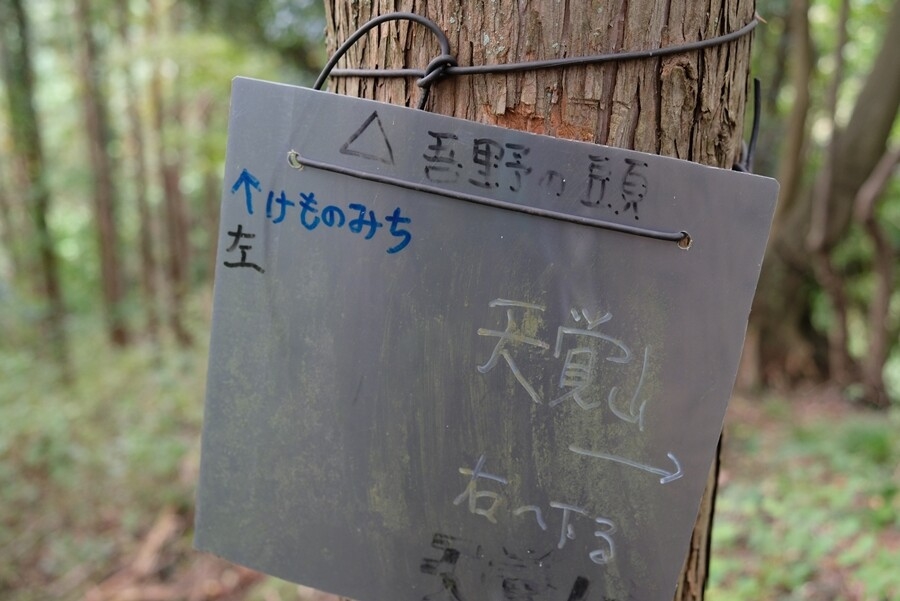 △ 吾野の頭
↑けものみち
左
天覚山
→
右へ下る
天覚山